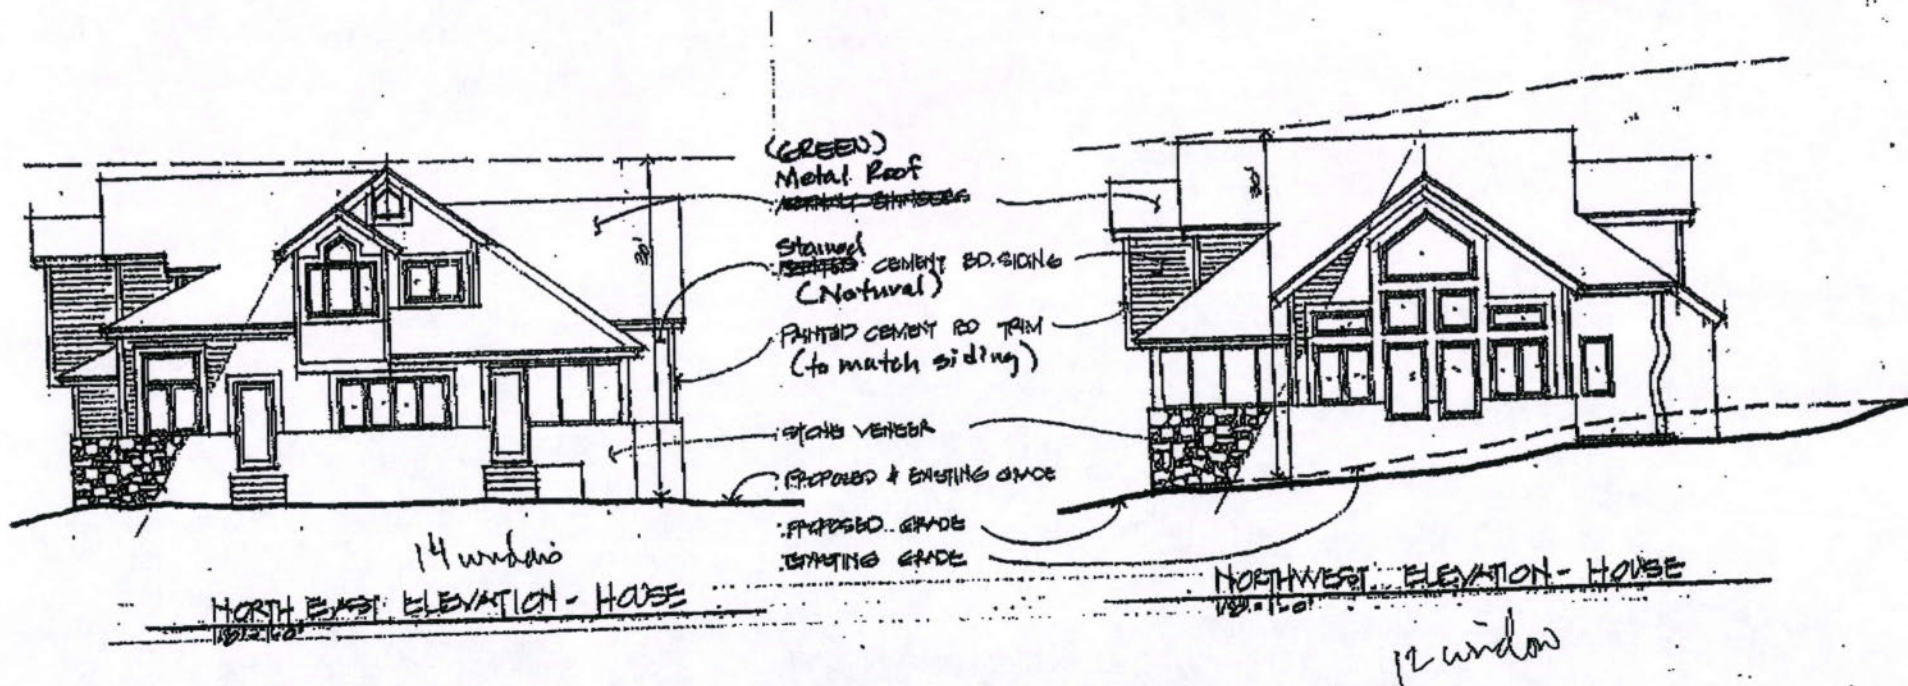 (GREEN)
Metal Roof
ASPHALT SHINGLES
30'
30'
Stained
CEMENT BD. SIDING
(Natural)
PAINTED CEMENT BD TRIM
(to match siding)
STONE VENEER
PROPOSED & EXISTING GRADE
PROPOSED GRADE
EXISTING GRADE
14 windows
NORTH EAST ELEVATION - HOUSE
1/8" = 1'-0"
NORTHWEST ELEVATION - HOUSE
1/8" = 1'-0"
12 window